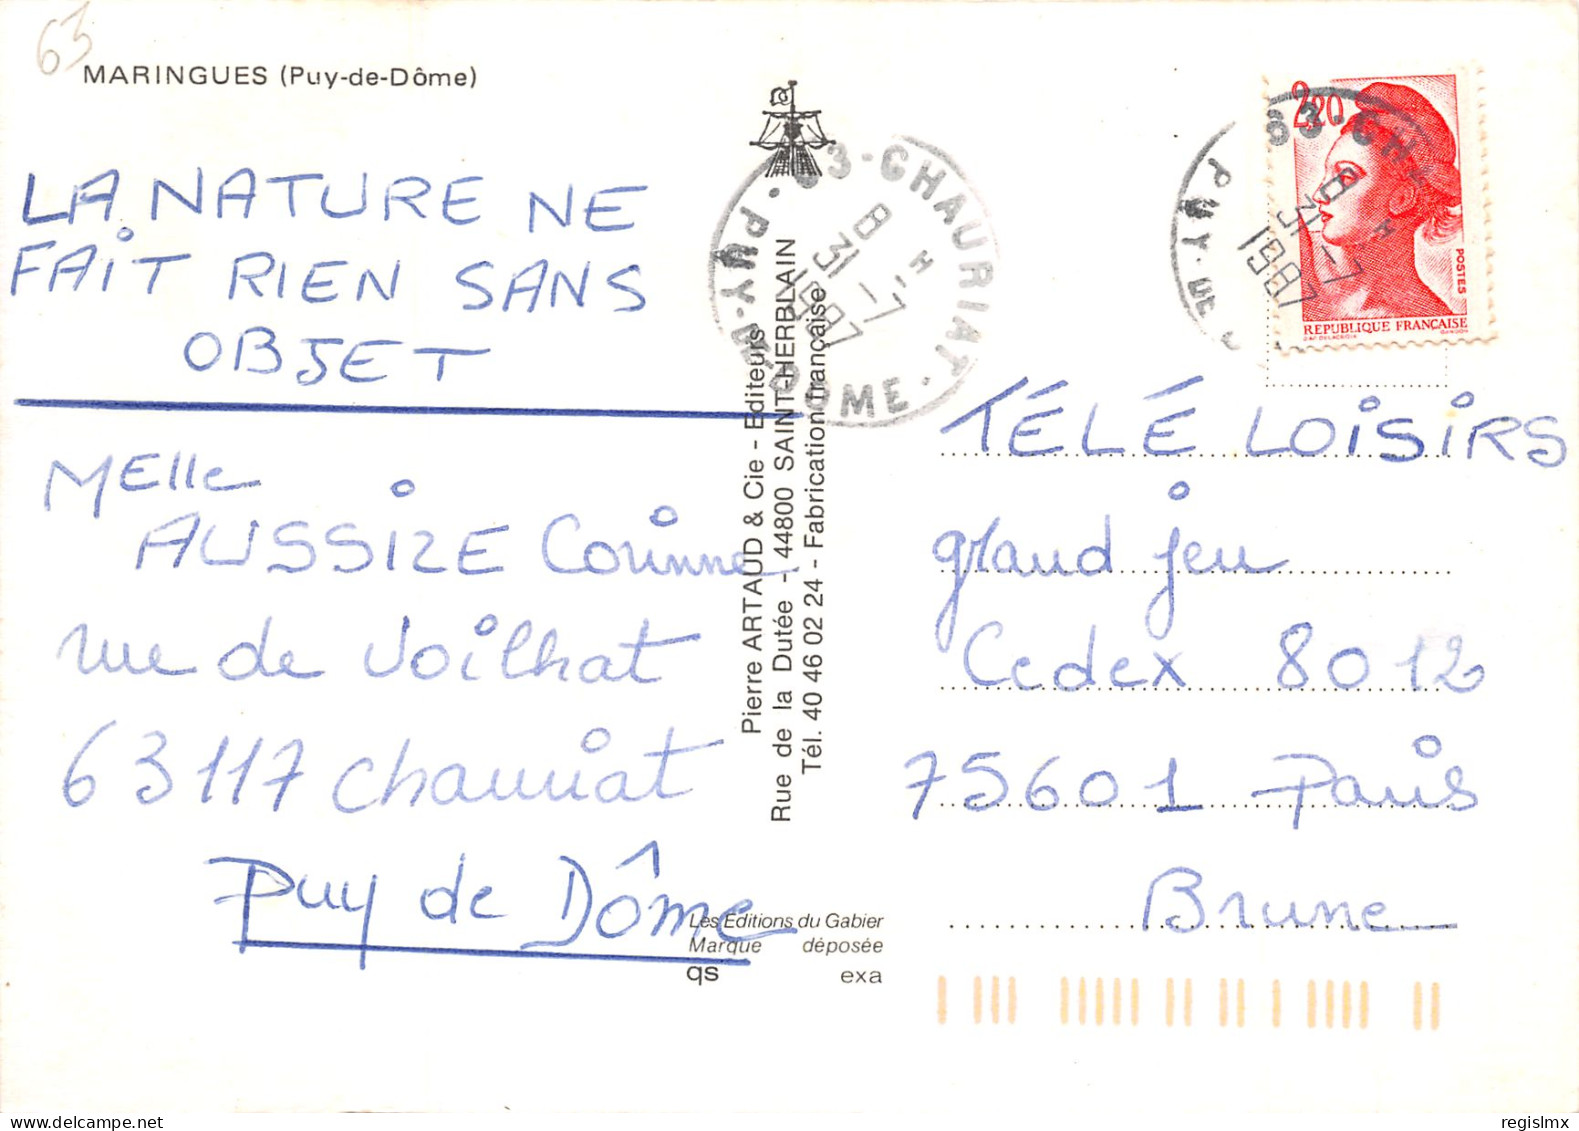 63
MARINGUES (Puy-de-Dôme)
LA NATURE NE
FAIT RIEN SANS
OBJET
Melle
AUSSIZE Corinne
rue de Voilhat
63117 Chauriat
Puy de Dôme
Pierre ARTAUD & Cie - Editeurs
Rue de la Dutée - 44800 SAINT-HERBLAIN
Tél. 40 46 02 24 - Fabrication française
Les Editions du Gabier
Marque déposée
qs exa
63-CHAURIAT
8 H
31-7
1987
PUY-DE-DOME
2,20
POSTES
REPUBLIQUE FRANÇAISE
D'AP. DELACROIX GANDON
63-CH
8 H
31-7
1987
PUY-DE
TÉLÉ LOISIRS
grand jeu
Cedex 8012
75601 Paris
Brune
regislmx